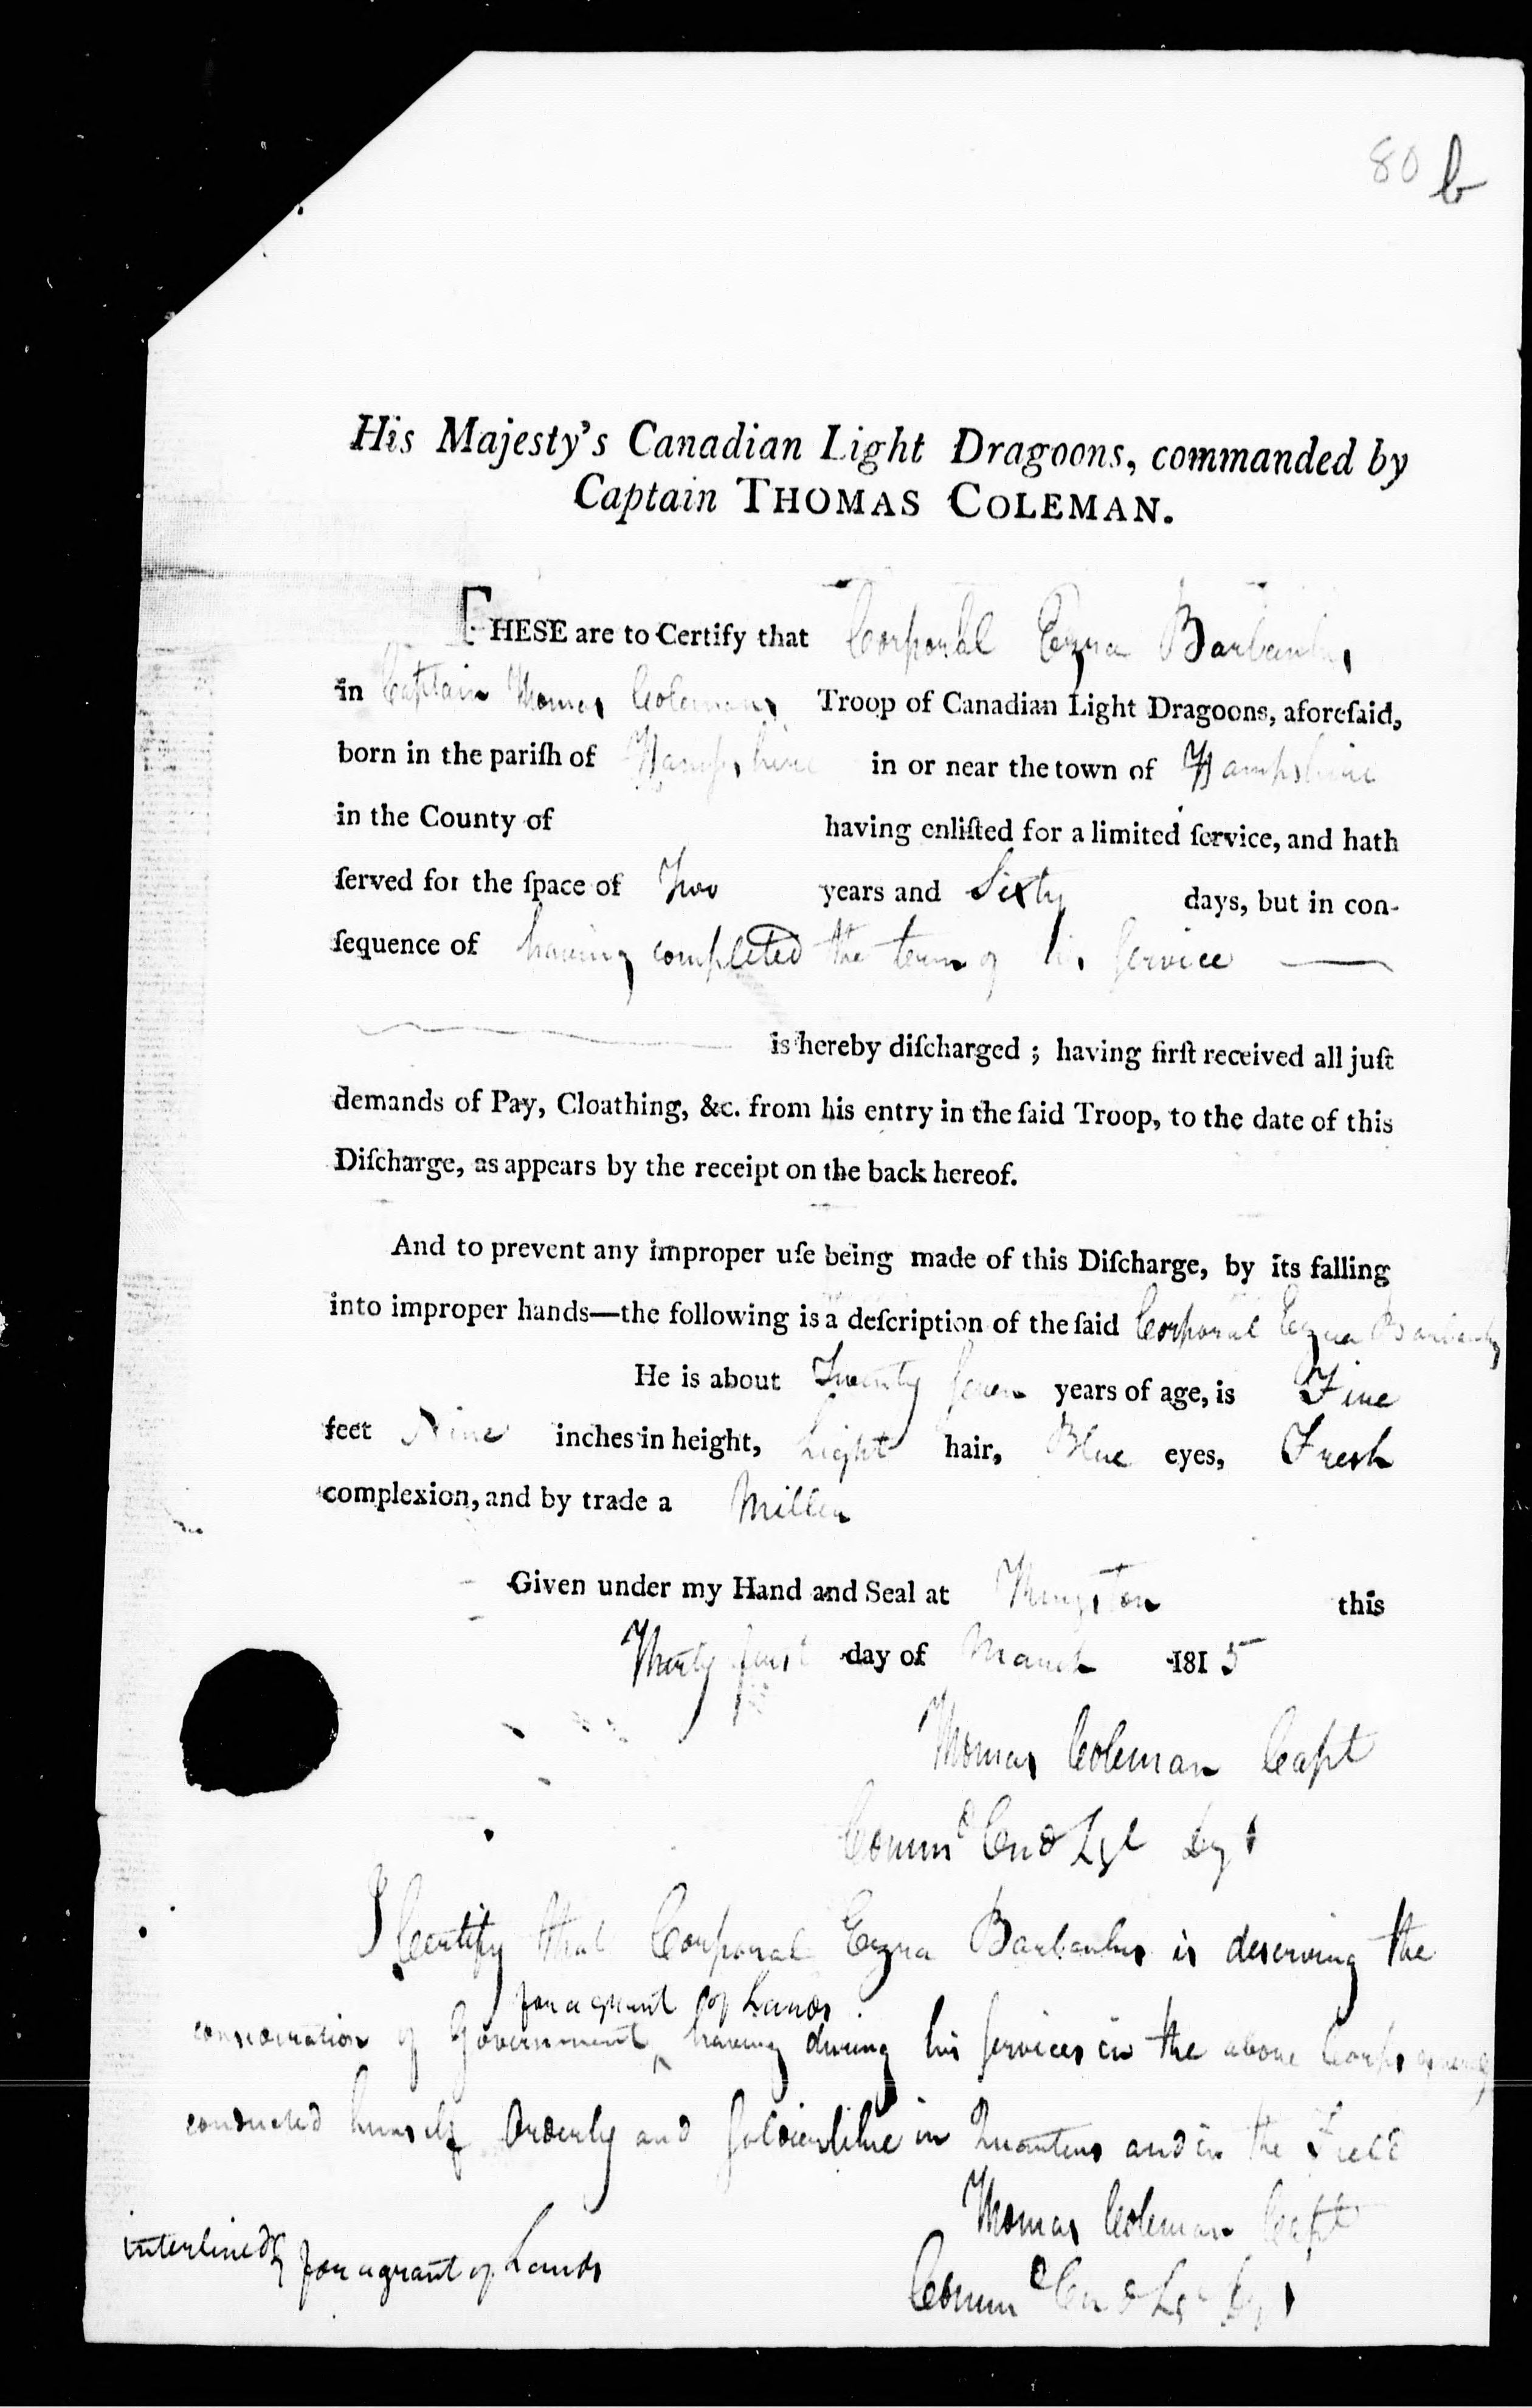 80 b
His Majesty's Canadian Light Dragoons, commanded by
Captain THOMAS COLEMAN.
THESE are to Certify that Corporal Ezra Barbanks
in Captain Thomas Colemans Troop of Canadian Light Dragoons, aforeſaid,
born in the pariſh of Hampshire in or near the town of Hampshire
in the County of having enliſted for a limited ſervice, and hath
ſerved for the ſpace of Two years and Sixty days, but in con-
ſequence of having completed the term of his Service
is hereby diſcharged ; having firſt received all juſt
demands of Pay, Cloathing, &c. from his entry in the ſaid Troop, to the date of this
Diſcharge, as appears by the receipt on the back hereof.
And to prevent any improper uſe being made of this Diſcharge, by its falling
into improper hands—the following is a deſcription of the ſaid Corporal Ezra Barbanks
He is about Twenty Seven years of age, is Five
feet Nine inches in height, Light hair, Blue eyes, Fresh
complexion, and by trade a Miller
Given under my Hand and Seal at Kingston this
Thirty first day of March 1815
Thomas Coleman Capt
Commd Cnd Lgt Dgs
I Certify that Corporal Ezra Barbanks is deserving the
for a grant of Lands
consideration of Government ^ having during his Services in the above Corps
conducted himself Orderly and Soldierlike in Quarters and in the Field
Thomas Coleman Capt
interlined for a grant of Lands
Commd Cnd Lgt Dgs